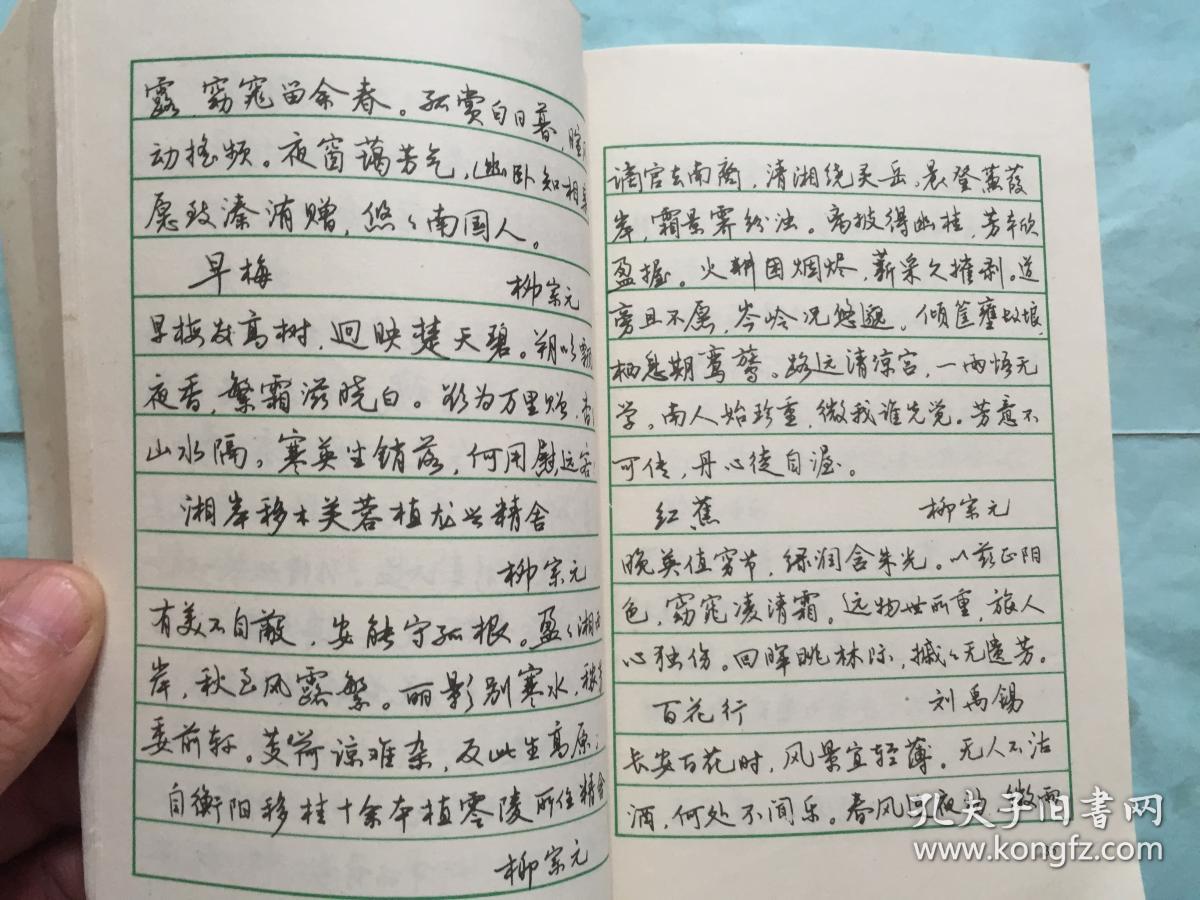 露，窈窕留余春。孤赏白日暮，暄风
动摇频。夜窗蔼芳气，幽卧知相亲
愿致溱洧赠，悠々南国人。
早梅 柳宗元
早梅发高树，迥映楚天碧。朔吹飘
夜香，繁霜滋晓白。欲为万里赠，杳
山水隔。寒英坐销落，何用慰远客
湘岸移木芙蓉植龙兴精舍
柳宗元
有美不自蔽，安能守孤根。盈々湘西
岸，秋至风露繁。丽影别寒水，秾芳
委前轩。芰荷谅难杂，反此生高原。
自衡阳移桂十余本植零陵所住精舍
柳宗元
谪官去南裔，清湘绕灵岳。晨登蒹葭
岸，霜景霁纷浊。离披得幽桂，芳本欣
盈握。火耕困烟烬，薪采久摧剥。道
旁且不愿，岑岭况悠邈。倾筐壅故壤，
栖息期鸾鷟。路远清凉宫，一雨悟无
学。南人始珍重，微我谁先觉。芳意不
可传，丹心徒自渥。
红蕉 柳宗元
晚英值穷节，绿润含朱光。以兹正阳
色，窈窕凌清霜。远物世所重，旅人
心独伤。回晖眺林际，摵々无遗芳。
百花行 刘禹锡
长安百花时，风景宜轻薄。无人不沽
酒，何处不闻乐。春风连夜动，微雨
孔夫子旧书网
www.kongfz.com